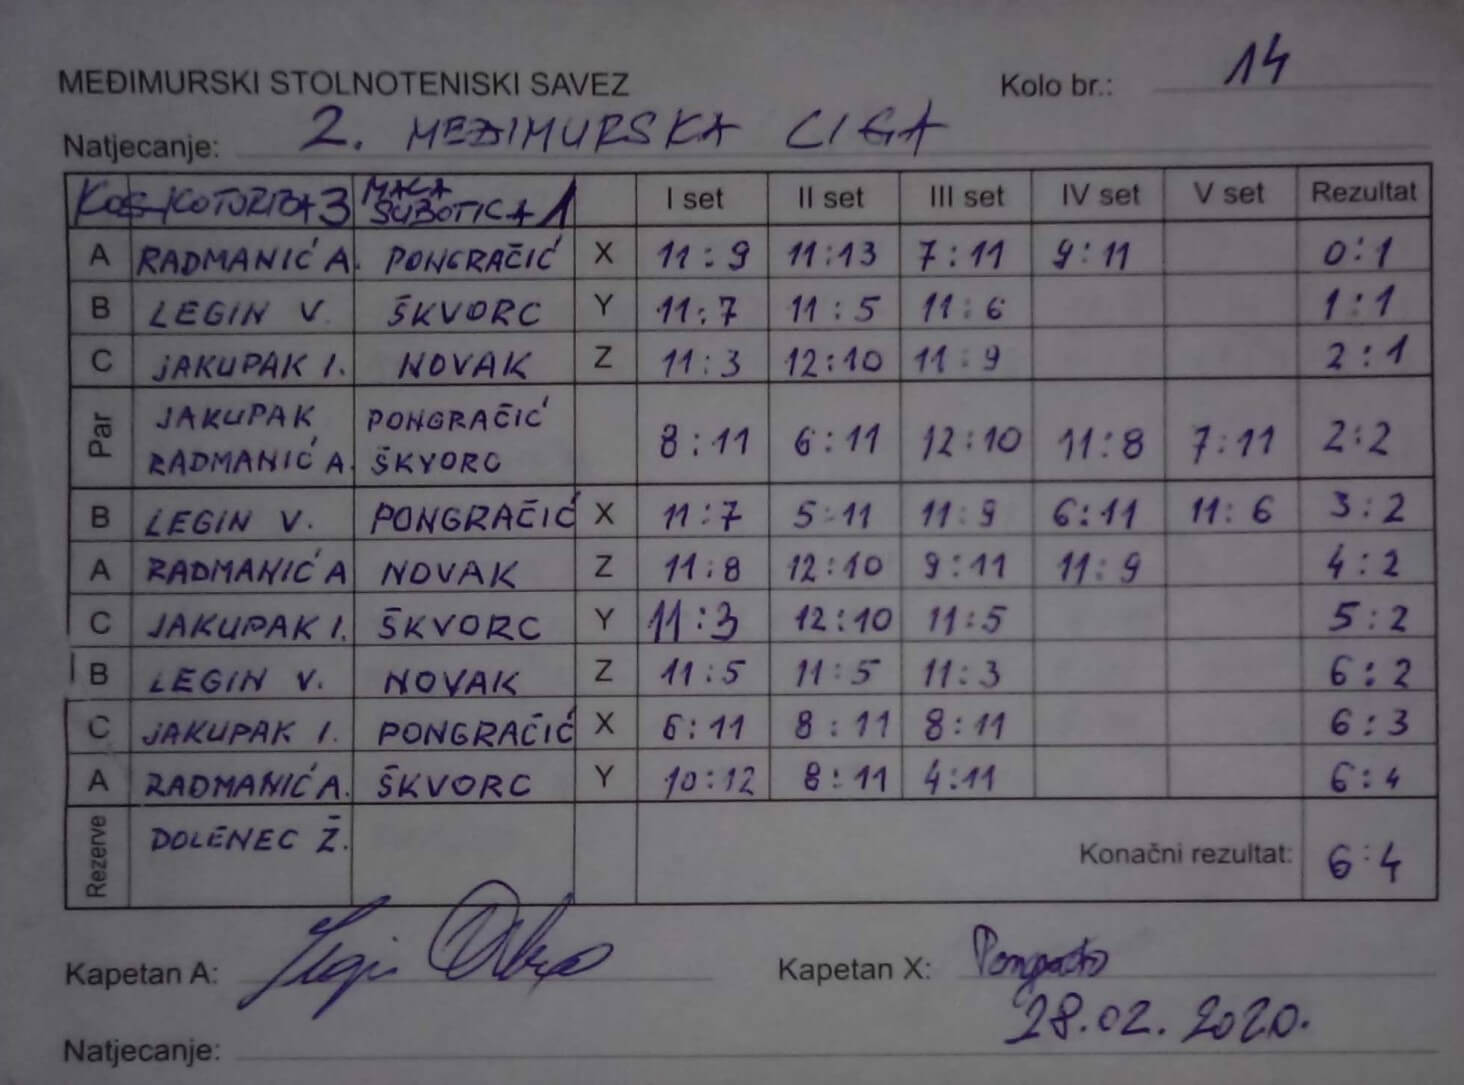 MEĐIMURSKI STOLNOTENISKI SAVEZ Kolo br.: 14
Natjecanje: 2. MEĐIMURSKA LIGA
KOTORIBA 3 MALA SUBOTICA 1 I set II set III set IV set V set Rezultat
A RADMANIĆ A. PONGRAČIĆ X 11:9 11:13 7:11 9:11 0:1
B LEGIN V. ŠKVORC Y 11:7 11:5 11:6 1:1
C JAKUPAK I. NOVAK Z 11:3 12:10 11:9 2:1
Par JAKUPAK RADMANIĆ A. PONGRAČIĆ ŠKVORC 8:11 6:11 12:10 11:8 7:11 2:2
B LEGIN V. PONGRAČIĆ X 11:7 5:11 11:9 6:11 11:6 3:2
A RADMANIĆ A NOVAK Z 11:8 12:10 9:11 11:9 4:2
C JAKUPAK I. ŠKVORC Y 11:3 12:10 11:5 5:2
B LEGIN V. NOVAK Z 11:5 11:5 11:3 6:2
C JAKUPAK I. PONGRAČIĆ X 6:11 8:11 8:11 6:3
A RADMANIĆ A. ŠKVORC Y 10:12 8:11 4:11 6:4
Rezerve DOLENEC Ž. Konačni rezultat: 6:4
Kapetan A: Kapetan X:
28.02.2020.
Natjecanje: